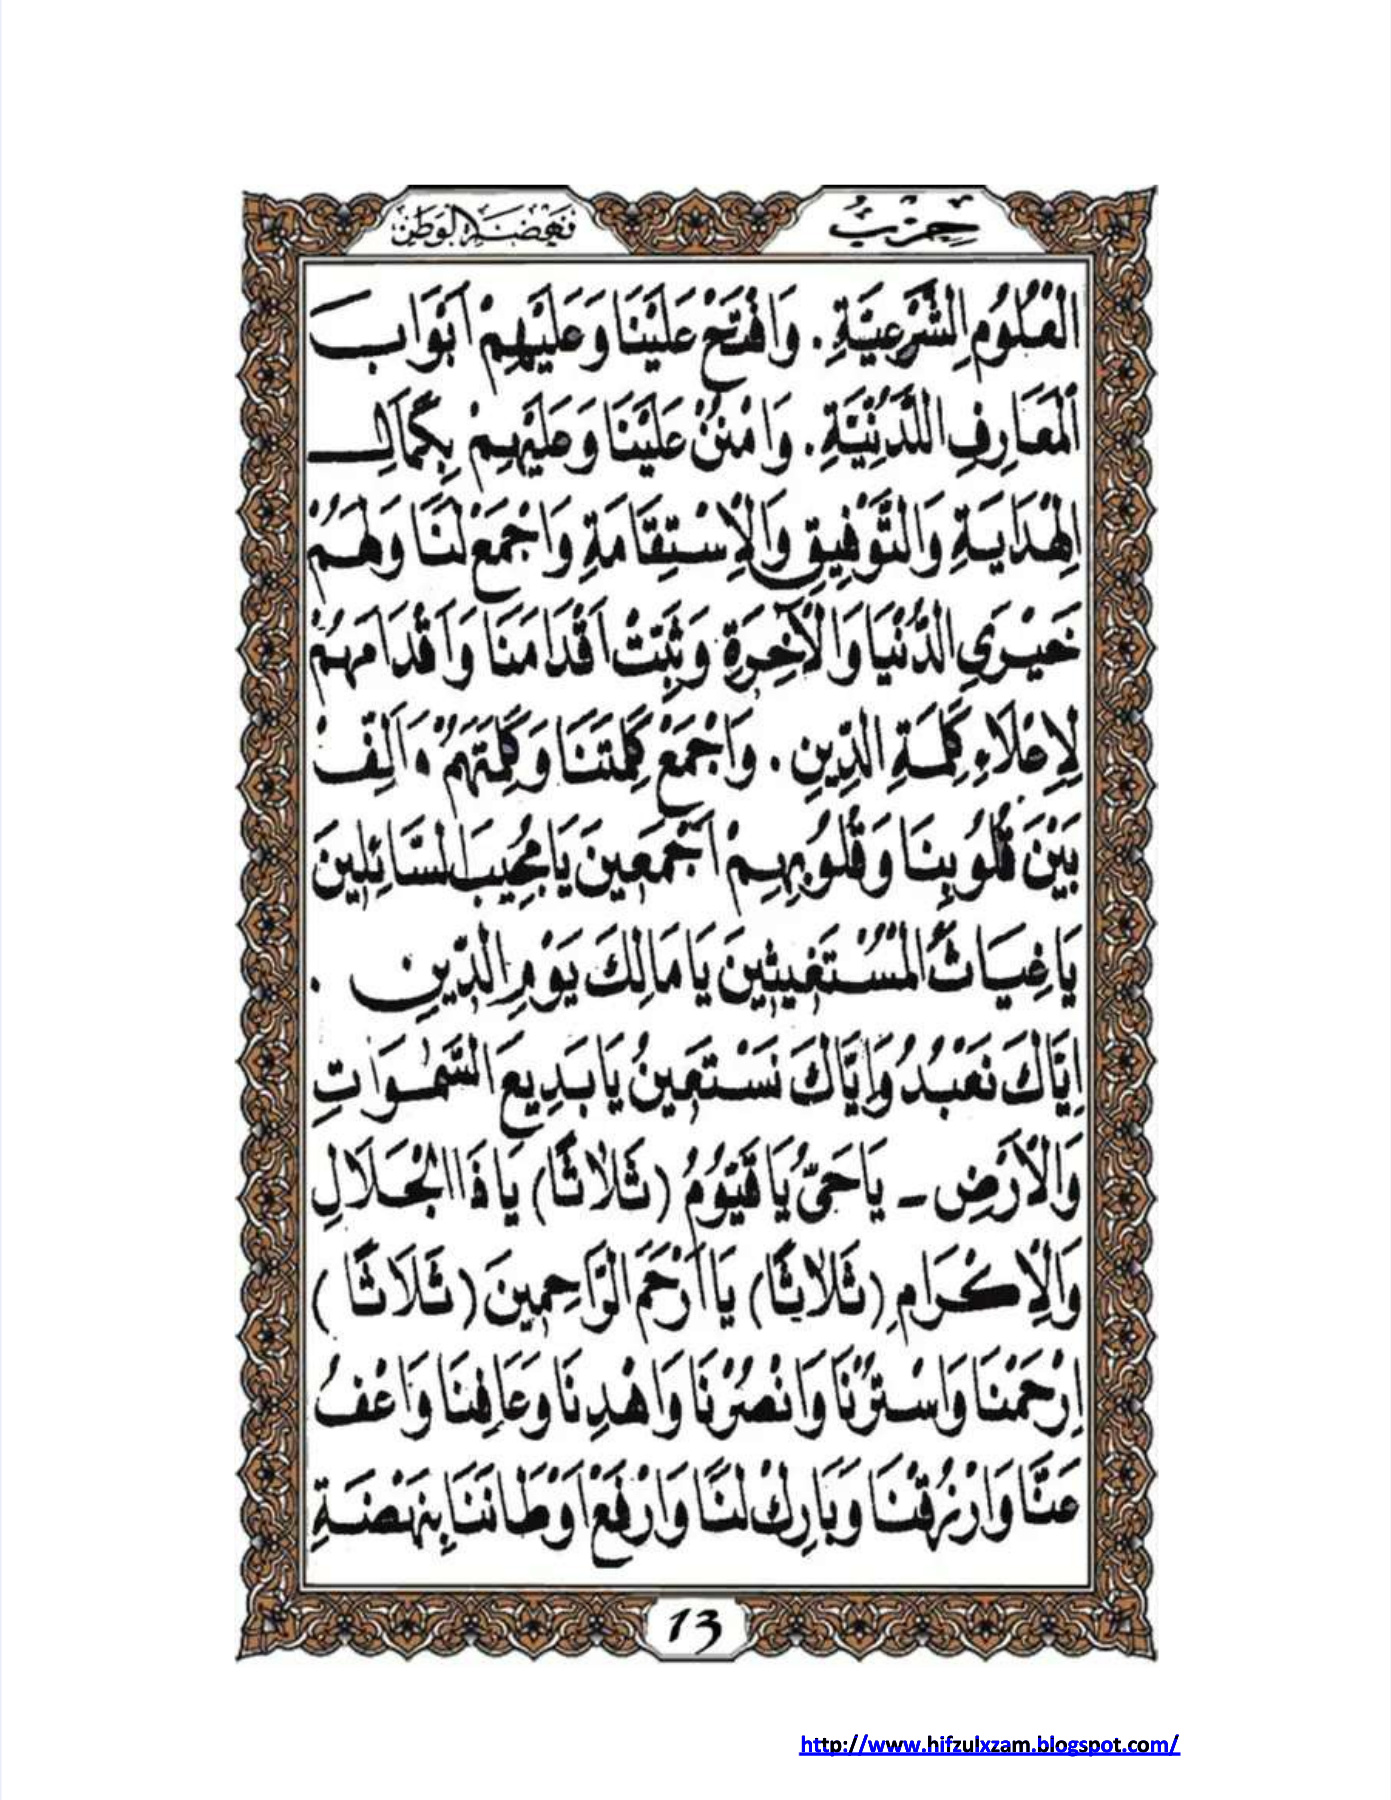 حِزْبُ
نَهْضَةِ الْوَطَنِ
الْعُلُوْمِ الشَّرْعِيَّةِ . وَافْتَحْ عَلَيْنَا وَعَلَيْهِمْ اَبْوَابَ
الْمَعَارِفِ اللَّدُنِيَّةِ . وَامْنُنْ عَلَيْنَا وَعَلَيْهِمْ بِكَمَالِ
الْهِدَايَةِ وَالتَّوْفِيقِ وَالْاِسْتِقَامَةِ وَاجْمَعْ لَنَا وَلَهُمْ
خَيْرَيِ الدُّنْيَا وَالْآخِرَةِ وَثَبِّتْ اَقْدَامَنَا وَاَقْدَامَهُمْ
لِاِعْلَاءِ كَلِمَةِ الدِّينِ . وَاجْمَعْ كَلِمَتَنَا وَكَلِمَتَهُمْ . وَاَلِّفْ
بَيْنَ قُلُوبِنَا وَقُلُوبِهِمْ اَجْمَعِينَ يَا مُجِيبَ السَّائِلِينَ
يَا غِيَاثَ الْمُسْتَغِيثِينَ يَا مَالِكَ يَوْمِ الدِّينِ .
اِيَّاكَ نَعْبُدُ وَاِيَّاكَ نَسْتَعِينُ يَا بَدِيعَ السَّمٰوَاتِ
وَالْاَرْضِ - يَا حَيُّ يَا قَيُّوْمُ (ثَلَاثًا) يَا ذَا الْجَلَالِ
وَالْاِكْرَامِ (ثَلَاثًا) يَا اَرْحَمَ الرَّاحِمِينَ (ثَلَاثًا)
اِرْحَمْنَا وَاسْتُرْنَا وَانْصُرْنَا وَاهْدِنَا وَعَافِنَا وَاعْفُ
عَنَّا وَارْزُقْنَا وَبَارِكْ لَنَا وَارْفَعْ اَوْطَانَنَا بِنَهْضَةِ
13
http://www.hifzulxzam.blogspot.com/